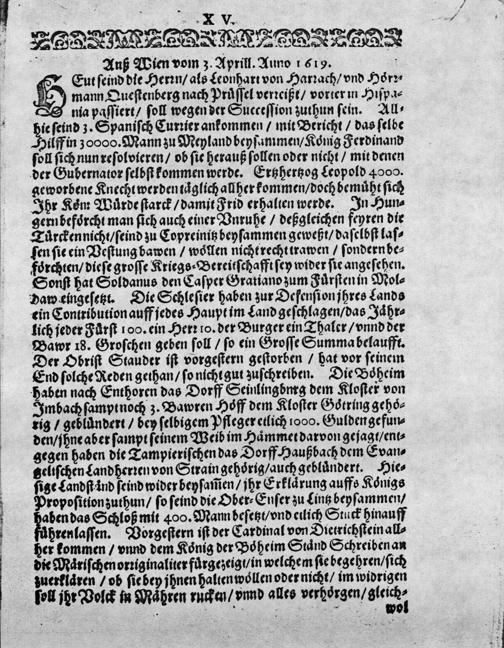 X V.
Auß Wien vom 3. Aprill. Anno 1619.
HEut seind die Herrn/ als Leonhart von Harrach/ vnd Hörr-
mann Questenberg nach Prüssel verreißt/ vorter in Hispa-
nia passiert/ soll wegen der Succession zuthun sein. All-
hie seind 3. Spanisch Currier ankommen/ mit Bericht/ das selbe
Hilff in 30000. Mann zu Meyland beysammen/ König Ferdinand
soll sich nun resolvieren/ ob sie herauß sollen oder nicht/ mit denen
der Gubernator selbst kommen werde. Ertzhertzog Leopold 4000.
geworbene Knecht werden täglich allher kommen/ doch bemüht sich
Ihr Kön: Würde starck/ damit Frid erhalten werde. In Hun-
gern beförcht man sich auch einer Vnruhe/ deßgleichen feyren die
Türcken nicht/ seind zu Copreinitz beysammen geweßt/ daselbst las-
sen sie ein Vestung bawen/ wöllen nicht recht trawen/ sondern be-
förchten/ diese grosse Kriegs-Bereitschafft sey wider sie angesehen.
Sonst hat Soldanus den Casper Gratiano zum Fürsten in Mol-
daw eingesetzt. Die Schlesier haben zur Defension jhres Lands
ein Contribution auff jedes Haupt im Land geschlagen/ das Jähr-
lich jeder Fürst 100. ein Herr 10. der Burger ein Thaler/ vnnd der
Bawr 18. Groschen geben soll/ so ein Grosse Summa belaufft.
Der Obrist Stauder ist vorgestern gestorben/ hat vor seinem
End solche Reden gethan/ so nicht gut zuschreiben. Die Böheim
haben nach Enthoren das Dorff Seinlingbnrg dem Kloster von
Imbach sampt noch 3. Bawren Höff dem Kloster Göttring gehö-
rig/ geblündert/ bey selbigem Pfleger etlich 1000. Gulden gefun-
den/ jhne aber sampt seinem Weib im Hämmet darvon gejagt/ ent-
gegen haben die Tampierischen das Dorff Haußbach dem Evan-
gelischen Landherren von Strain gehörig/ auch geblündert. Hie-
sige Landständ seind wider beysam̃en/ jhr Erklärung auffs Königs
Proposition zuthun/ so seind die Ober-Enser zu Lintz beysammen/
haben das Schloß mit 400. Mann besetzt/ vnd etlich Stuck hinauff
führen lassen. Vorgestern ist der Cardinal von Dietrichstein all-
her kommen/ vnnd dem König der Böheim Ständ Schreiben an
die Märischen orriginaliter fürgezeigt/ in welchem sie begehren/ sich
zuerklären/ ob sie bey jhnen halten wöllen oder nicht/ im widrigen
soll jhr Volck in Mähren rucken/ vnnd alles verhörgen/ gleich-
wol